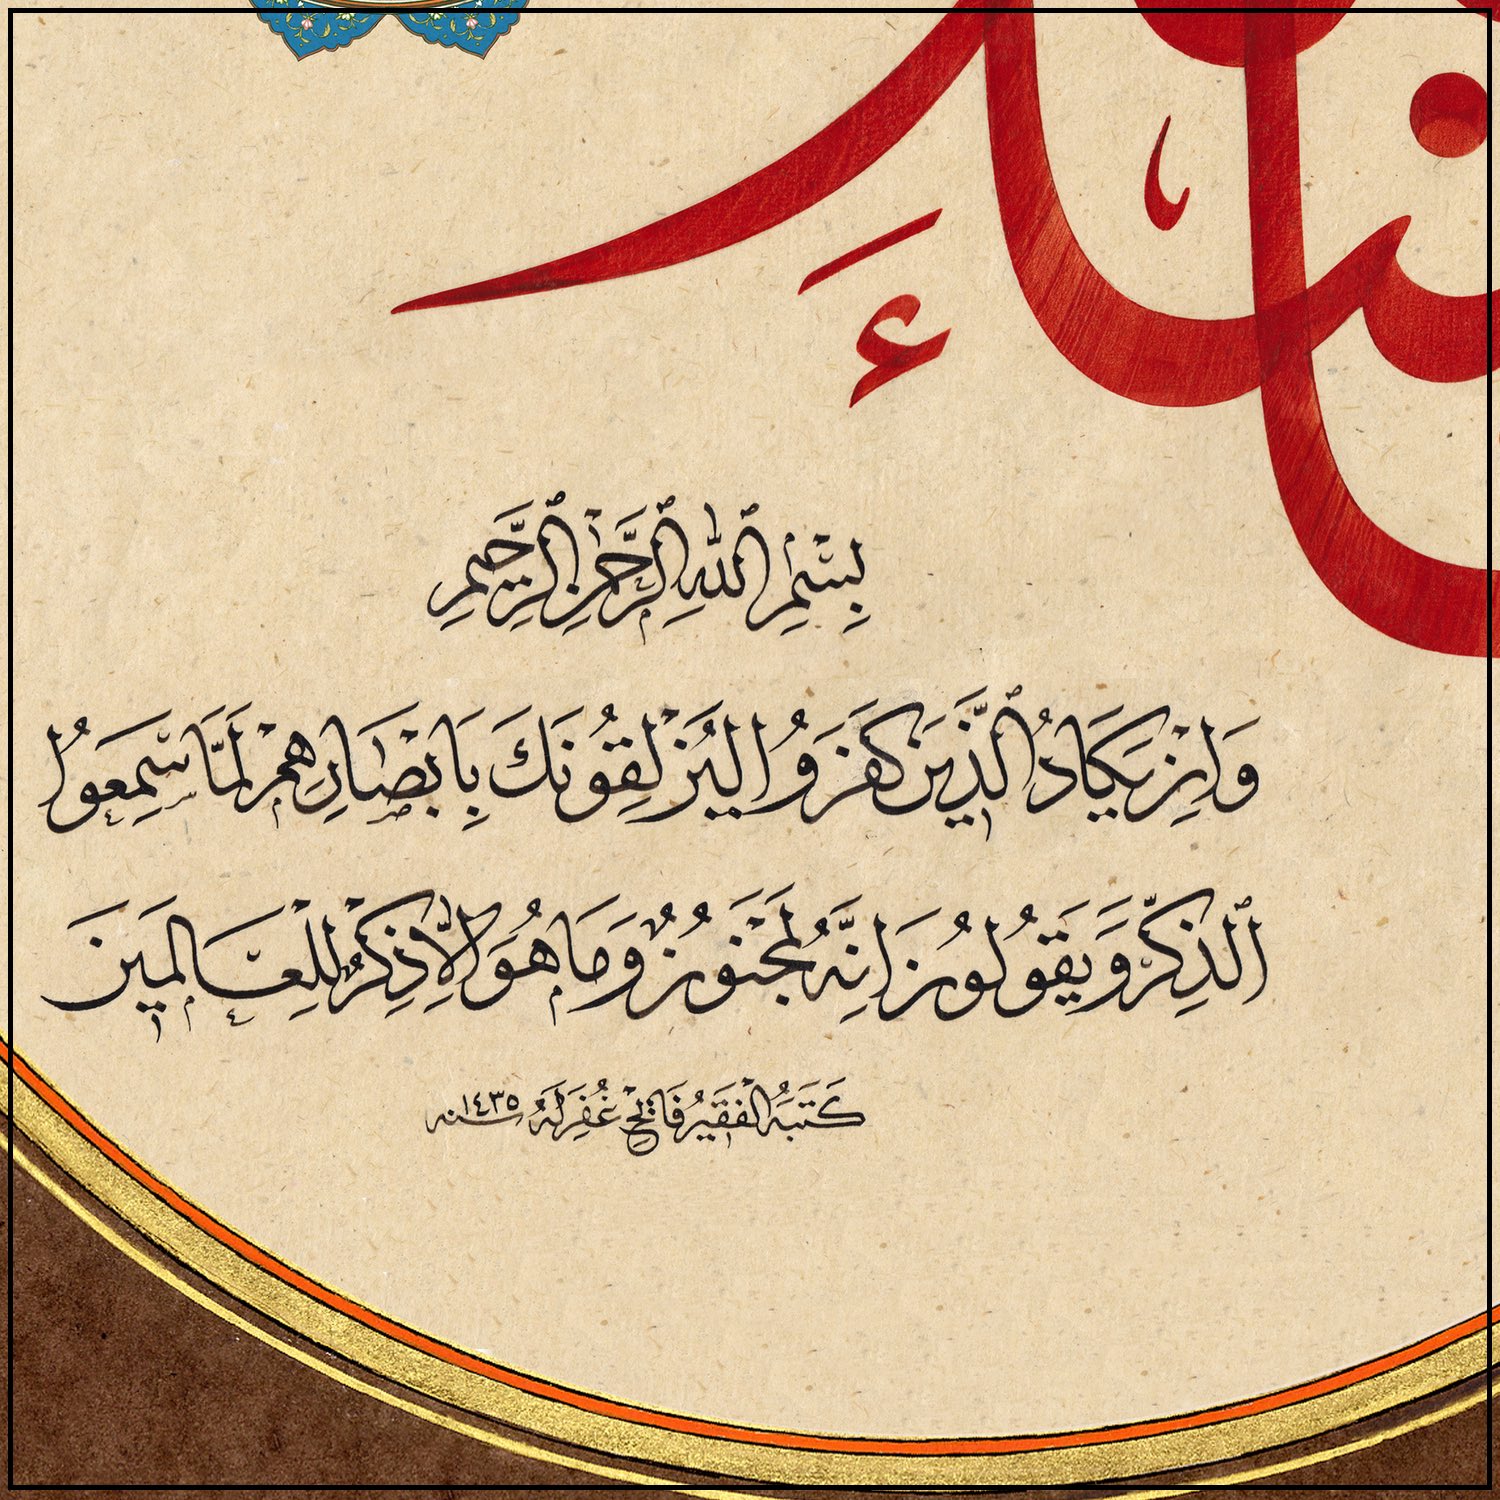 بِسْمِ ٱللّٰهِ ٱلرَّحْمٰنِ ٱلرَّحِيمِ
وَاِنْ يَكَادُ ٱلَّذِينَ كَفَرُوا لَيُزْلِقُونَكَ بِاَبْصَارِهِمْ لَمَّا سَمِعُوا
ٱلذِّكْرَ وَيَقُولُونَ اِنَّهُ لَمَجْنُونٌ وَمَا هُوَ اِلَّا ذِكْرٌ لِلْعَالَمِينَ
كَتَبَهُ الْفَقِيرُ فَاتِحْ غُفِرَ لَهُ سنه ١٤٣٥